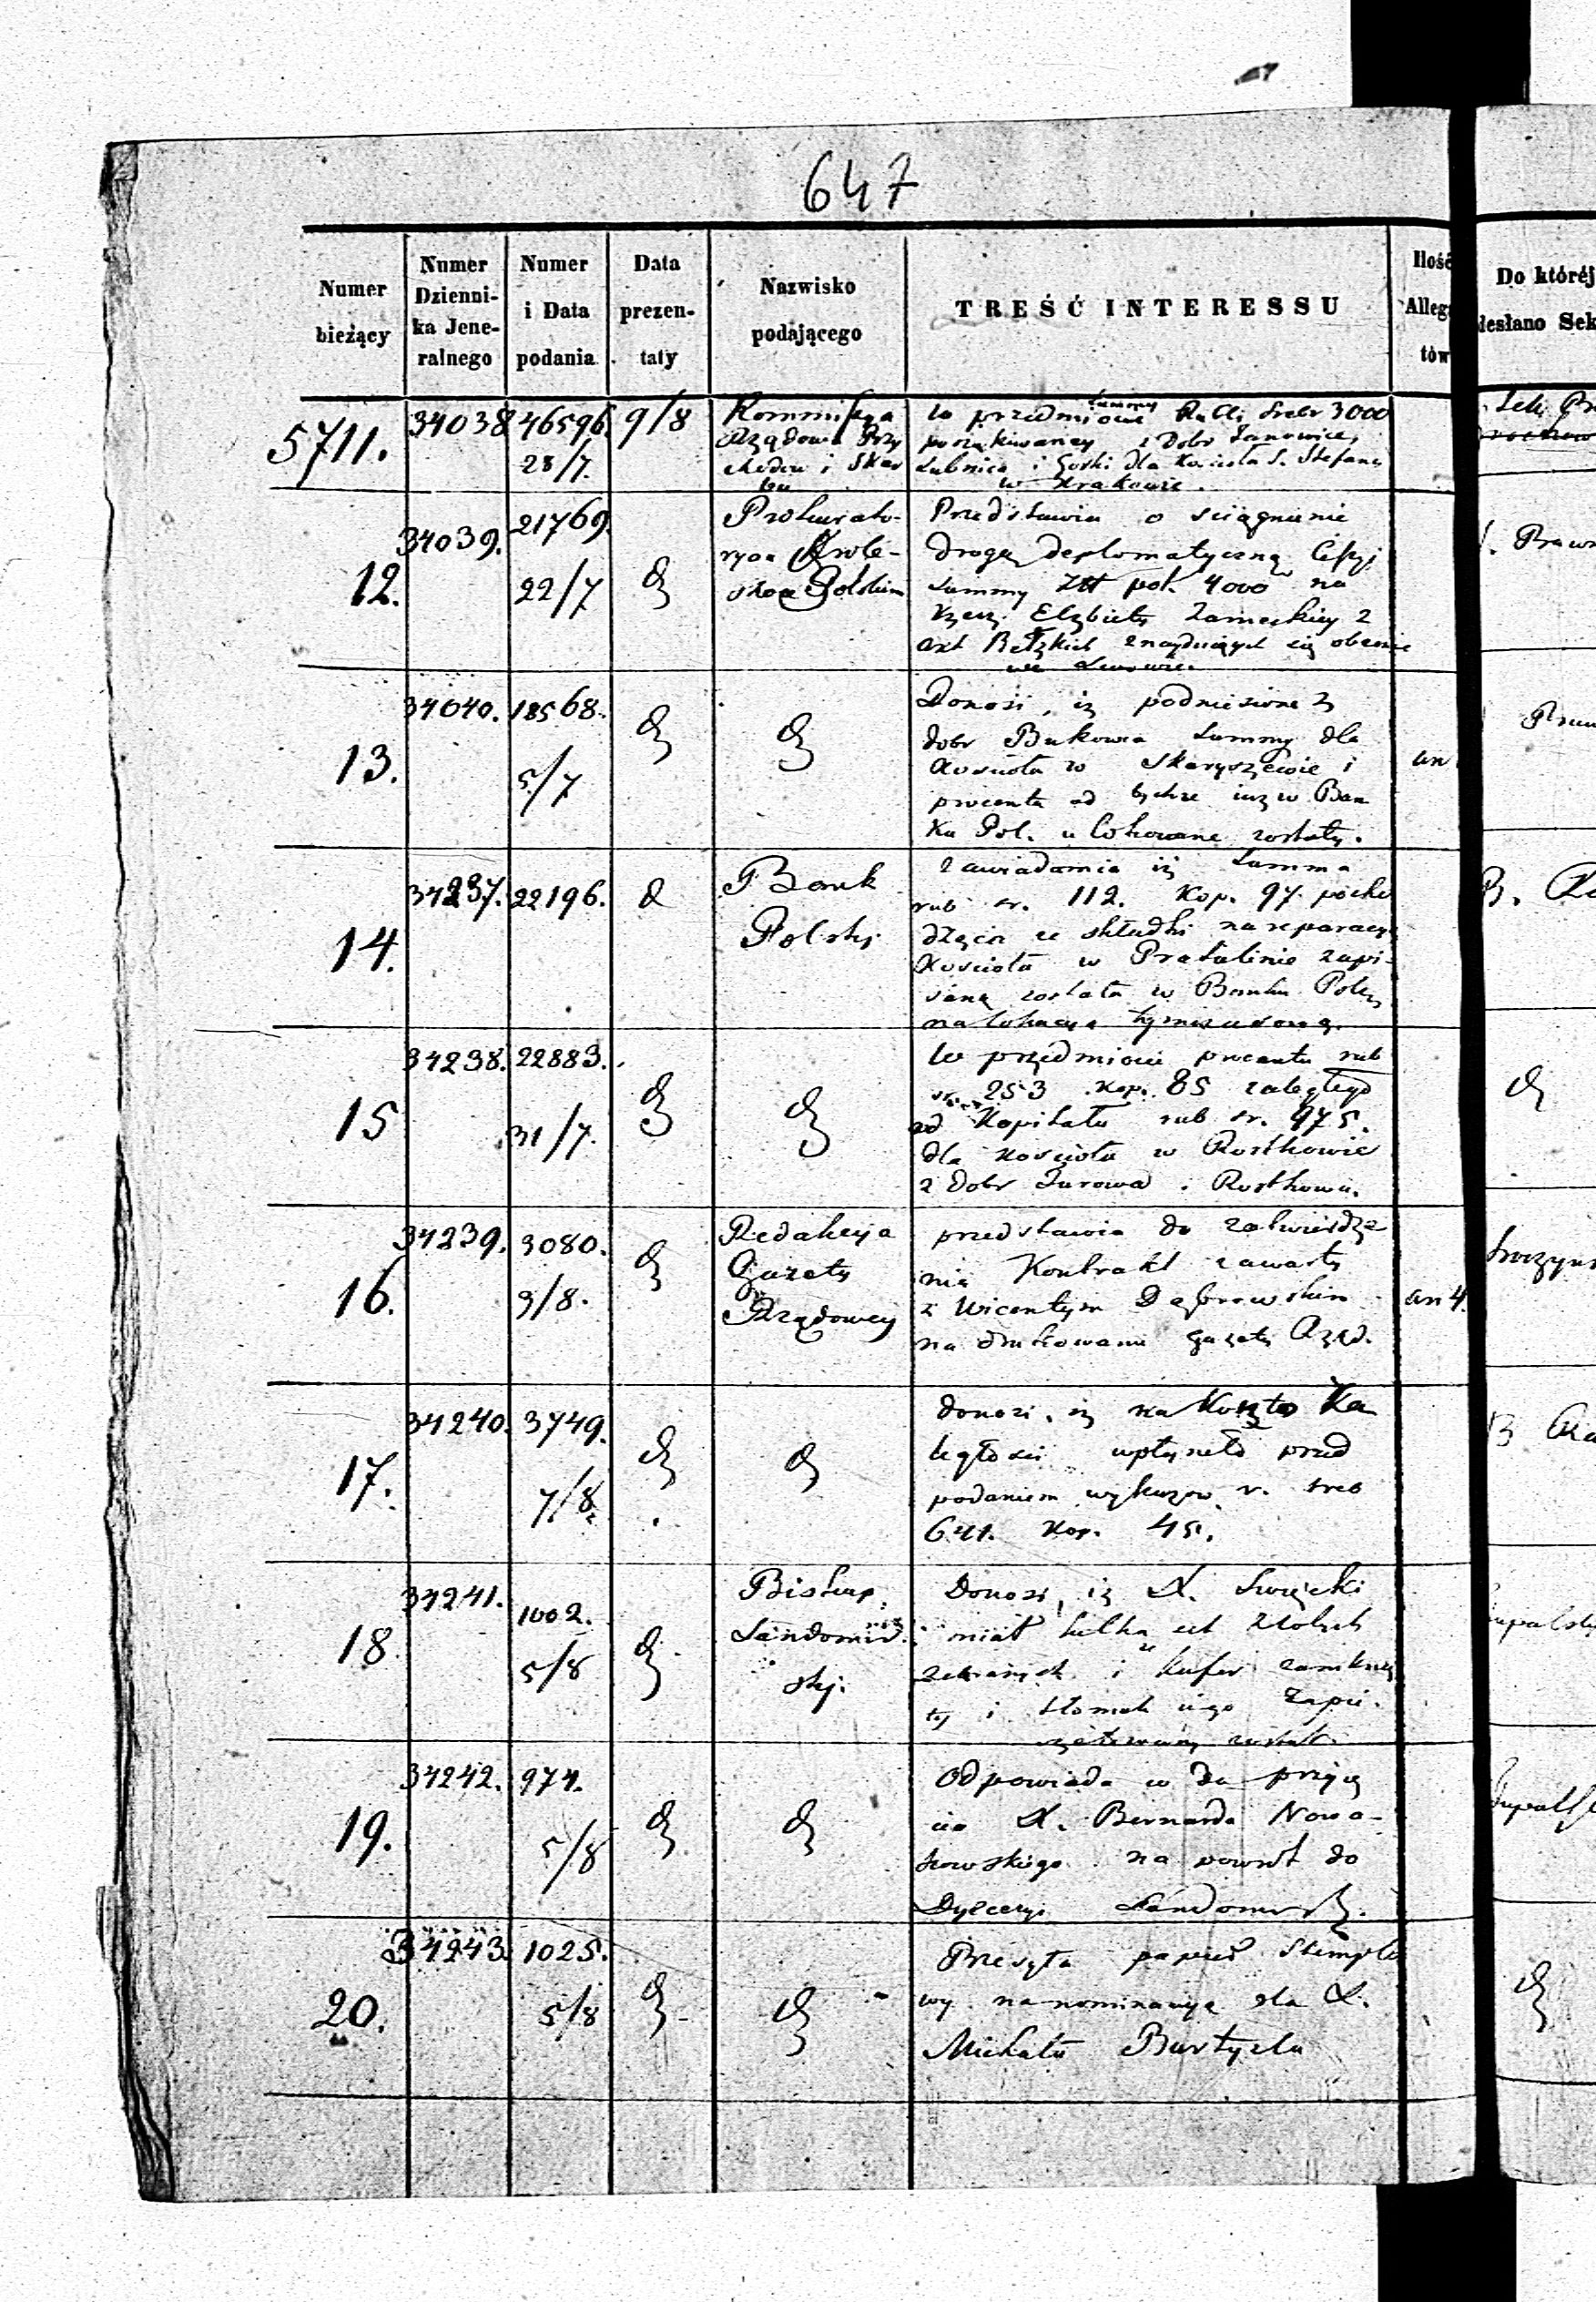 647
Numer bieżący
Numer Dzienni-ka Jene-ralnego
Numer i Data podania
Data prezen-taty
Nazwisko podającego
TREŚĆ INTERESSU
Ilość Allega tów
Do któréj
desłano Sek
5711.
34038
46596.
28/7.
9/8
Kommissya
Rządowa Przy
chodów i Skar
bu
w przedmiocie summy
Srebr 3000
poszukiwaney z Dobr Janowice,
Lubnica i Gorki dla Kościoła S. Stefana
w Krakowie.
12.
34039.
21769.
22/7
Prokurato-
rya Krole-
stwa Polskie
Przedstawia o sciągnienie
drogą deplomatyczną
summy Złt pol. 4000 na
rzecz Elzbiety Zameckiey z
Bełzkich znayduiących się obecnie
we Lwowie.
13.
34040.
18568.
5/7
Donosi, iż podniesione z
dobr Bukowa summy dla
Kościoła w Skaryszewie i
procenta od tychze iuz w Ban
ku Pol. ulokowane zostały.
an
14.
34237.
22196.
Bank
Polski
Zawiadamia iż Summa
rub sr. 112. kop. 97 pocho
dząca ze składki na reparacyą
Kościoła w Pratulinie zapi-
sana została w Banku Pols
na lokacyą tymczasową.
15
34238.
22883.
31/7.
W przedmiocie procentu rub
sr. 253 kop. 85 zaległego
od Kapitału rub sr. 975.
dla kościoła w Rostkowie
z dobr Żurowa i Rostkowa.
16.
34239.
3080.
3/8.
Redakcya
Gazety
Rządowey
przedstawia do zatwierdze
nia Kontrakt zawarty
z Wicentym Dąbrowskim
na drukowanie gazety Rząd.
an 4.
17.
34240.
3749.
7/8.
donosi, iż na
ległości wpłyneło przed
podaniem wykazow r. sreb
641. kop. 45.
18
34241.
1002.
5/8
Biskup
Sandomir
ski.
Donosi, iż X. Swięcki
miał kilka
zebranych i kufer zamknię
ty i tłomok iego zapie-
czętowany został.
19.
34242.
974.
5/8
Odpowiada w da przyię
cia X. Bernarda Nowa-
kowskiego na powrót do
Dyecezyi Sandomirsk.
20.
34243.
1025.
5/8
Przesyła papier stemplo
wy na nominacyą dla X.
Michała Bartyzla